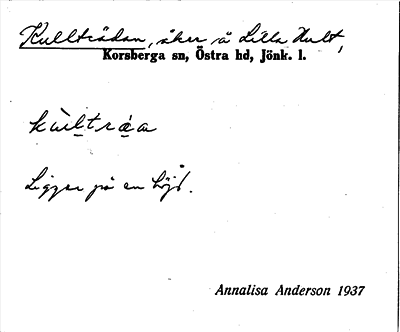 Kullträdan, åker å Lilla Hult,
Korsberga sn, Östra hd, Jönk. l.
kùltráa
Ligger på en höjd.
Annalisa Anderson 1937